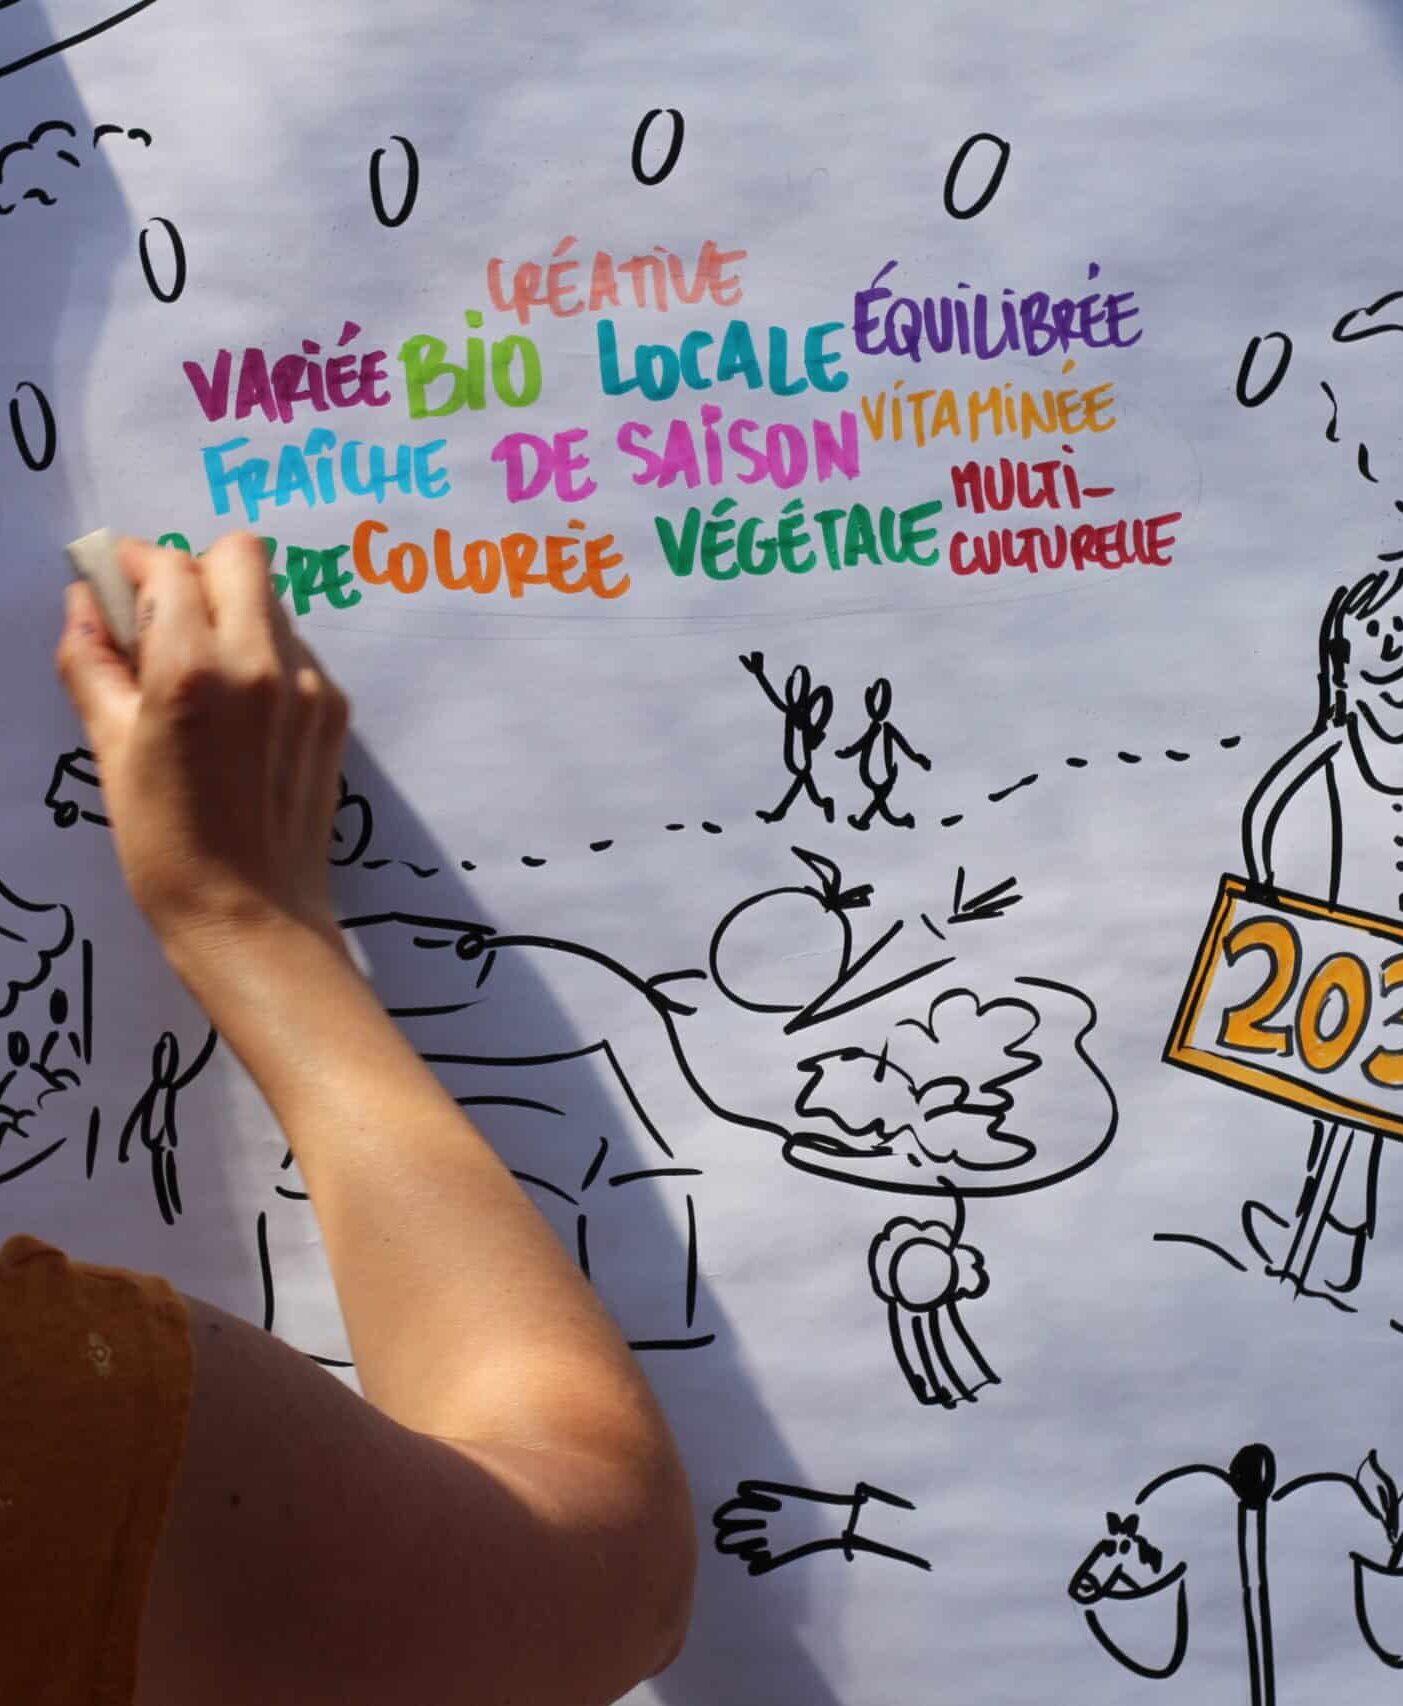 CRÉATIVE
VARIÉE BIO LOCALE ÉQUILIBRÉE
FRAÎCHE DE SAISON VITAMINÉE
COLORÉE VÉGÉTALE MULTI-
CULTURELLE
203